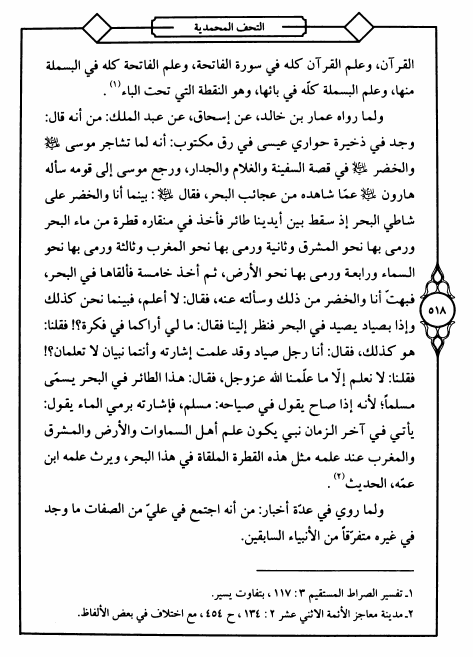 التحف المحمدية
القرآن، وعلم القرآن كله في سورة الفاتحة، وعلم الفاتحة كله في البسملة
منها، وعلم البسملة كلّه في بائها، وهو النقطة التي تحت الباء(١).
ولما رواه عمار بن خالد، عن إسحاق، عن عبد الملك: من أنه قال:
وجد في ذخيرة حواري عيسى في رق مكتوب: أنه لما تشاجر موسى ﷺ
والخضر ﷺ في قصة السفينة والغلام والجدار، ورجع موسى إلى قومه سأله
هارون ﷺ عمّا شاهده من عجائب البحر، فقال ﷺ: بينما أنا والخضر على
شاطي البحر إذ سقط بين أيدينا طائر فأخذ في منقاره قطرة من ماء البحر
ورمى بها نحو المشرق وثانية ورمى بها نحو المغرب وثالثة ورمى بها نحو
السماء ورابعة ورمى بها نحو الأرض، ثم أخذ خامسة فألقاها في البحر،
فبهتّ أنا والخضر من ذلك وسألته عنه، فقال: لا أعلم، فبينما نحن كذلك
وإذا بصياد يصيد في البحر فنظر إلينا فقال: ما لي أراكما في فكرة؟! فقلنا:
هو كذلك، فقال: أنا رجل صياد وقد علمت إشارته وأنتما نبيان لا تعلمان؟!
فقلنا: لا نعلم إلّا ما علّمنا الله عزوجل، فقال: هذا الطائر في البحر يسمّى
مسلماً؛ لأنه إذا صاح يقول في صياحه: مسلم، فإشارته برمي الماء يقول:
يأتي في آخر الزمان نبي يكون علم أهل السماوات والأرض والمشرق
والمغرب عند علمه مثل هذه القطرة الملقاة في هذا البحر، ويرث علمه ابن
عمّه، الحديث(٢).
ولما روي في عدّة أخبار: من أنه اجتمع في عليّ من الصفات ما وجد
في غيره متفرّقاً من الأنبياء السابقين.
٥١٨
١ـ تفسير الصراط المستقيم ٣: ١١٧، بتفاوت يسير.
٢ـ مدينة معاجز الأئمة الاثني عشر ٢: ١٣٤، ح ٤٥٤، مع اختلاف في بعض الألفاظ.